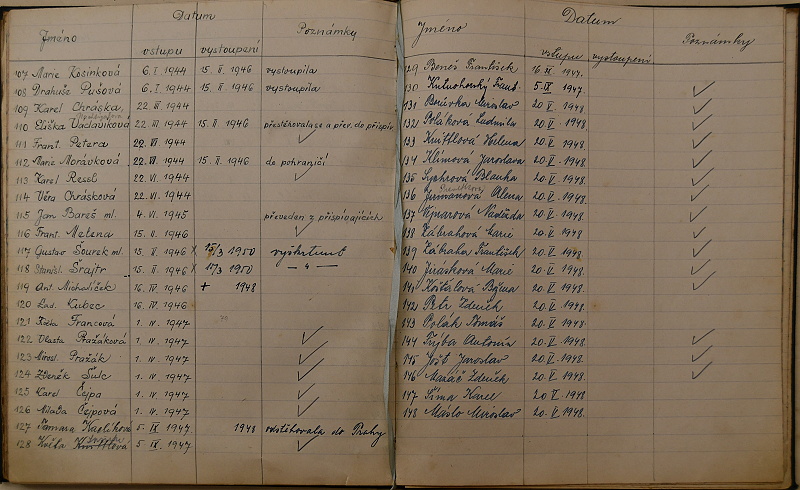 Datum
Jméno vstupu vystoupení Poznámky
107 Marie Kosinková 6. I. 1944 15. II. 1946 vystoupila
108 Drahuše Pušová 6. I. 1944 15. II. 1946 vystoupila
109 Karel Chráska 22. III. 1944
110 Eliška Václavíková 22. III. 1944 15. II. 1946 přestěhovala se a přev. do přispív.
111 Frant. Petera 22. VI. 1944
112 Marie Morávková 22. VI. 1944 15. II. 1946 do pohraničí
113 Karel Resl 22. VI. 1944
114 Věra Chrásková 22. VI. 1944
115 Jan Bareš ml. 4. VI. 1945 převeden z přispívajících
116 Frant. Melena 15. II. 1946
117 Gustav Šourek ml. 15. II. 1946 X 15/3 1950 vyškrtnut
118 Stanisl. Šrajtr 15. II. 1946 X 17/3 1950 — " —
119 Ant. Michalíček 16. IV. 1946 + 1948
120 Lad. Kubec 16. IV. 1946
121 Francová 1. IV. 1947
122 Vlasta Pražáková 1. IV. 1947
123 Mirosl. Pražák 1. IV. 1947
124 Zdeněk Šulc 1. IV. 1947
125 Karel Čejpa 1. IV. 1947
126 Milada Čejpová 1. IV. 1947
127 Tamara Havlíková 5. IX. 1947 1948 odstěhovala do Prahy
128 Květa Knifflová 5. IX. 1947
Datum
Jméno vstupu vystoupení Poznámky
129 Beneš František 16. 1947.
130 Kutnohorský Frant. 5. IX 1947.
131 Borůvka Miroslav 20. V. 1948.
132 Poláková Ludmila 20. V. 1948.
133 Knifflová Helena 20. V. 1948.
134 Klímová Jaroslava 20. V. 1948.
135 Sychrová Blanka 20. V. 1948.
136 Jirmanová Alena 20. V. 1948.
137 Naděžda 20. V. 1948.
138 Zábrahová Marie 20. V. 1948.
139 Zábraha František 20. V. 1948.
140 Jirásková Marie 20. V. 1948.
141 Košťálová Božena 20. V. 1948.
142 Petr Zdeněk 20. V. 1948.
143 Polák Tomáš 20. V. 1948.
144 Trýba Antonín 20. V. 1948.
145 Jošt Jaroslav 20. V. 1948.
146 Mazáč Zdeněk 20. V. 1948.
147 Šíma Karel 20. V. 1948.
148 Máslo Miroslav 20. V. 1948.